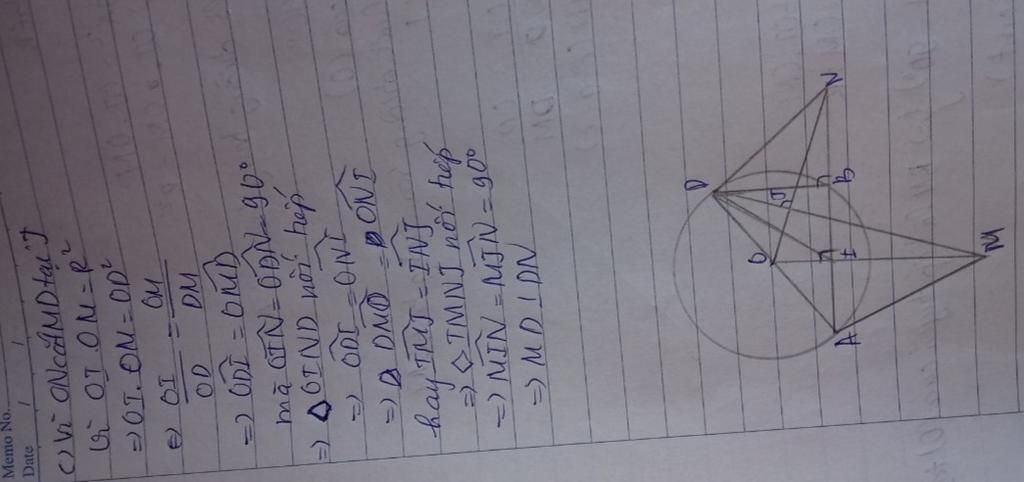 Memo No.
Date / /
c) Vì ON cắt MD tại J
Vì OI.OM=R²
=> OI.OM=OD²
<=> OI/OD = OM/DM
=> ODI = OMD
mà OIN = ODN = 90°
=> OIND nội tiếp
=> ODI = ONI
=> DMO = ONI
hay IMJ = INJ
=> ◇IMNJ nội tiếp
=> MIN = MJN = 90°
=> MD ⊥ DN
D
N
O
J
B
I
A
M